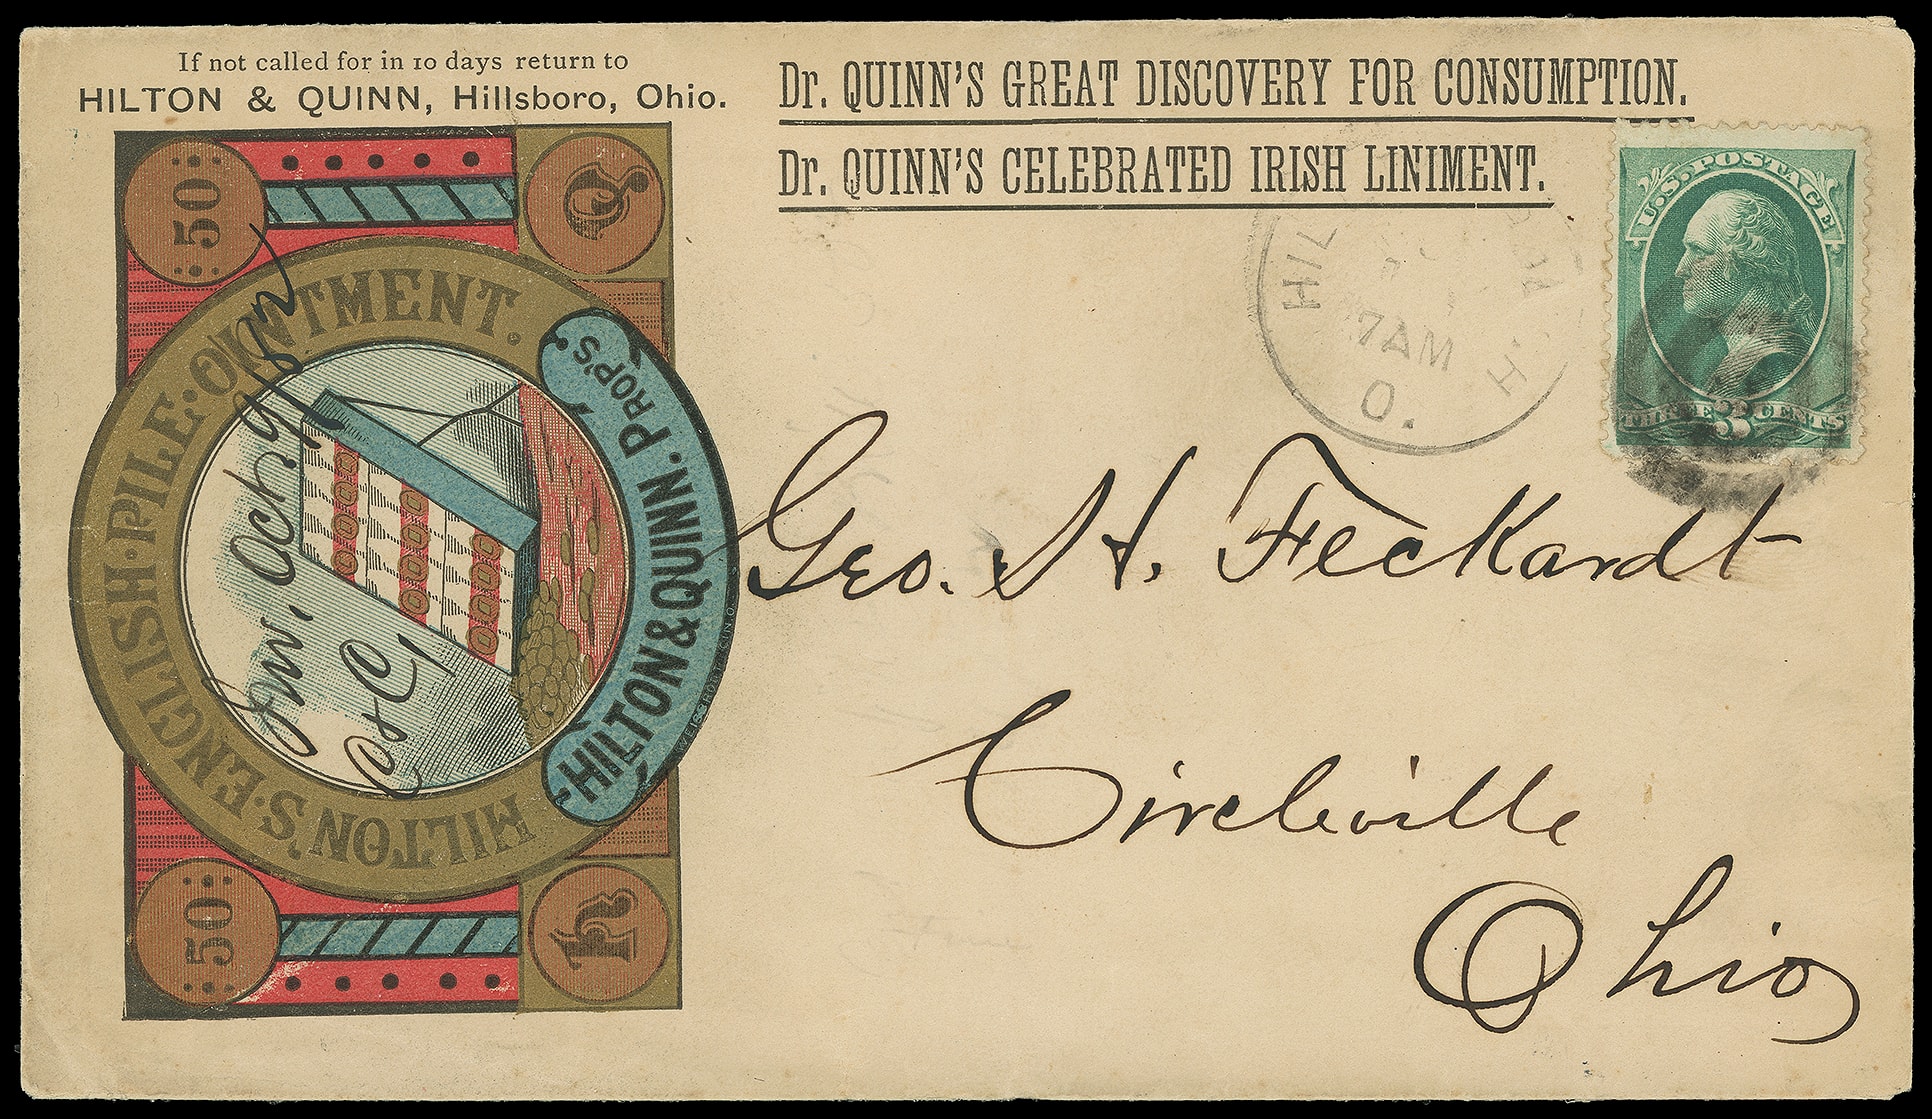 If not called for in 10 days return to
HILTON & QUINN, Hillsboro, Ohio.
Dr. QUINN'S GREAT DISCOVERY FOR CONSUMPTION.
Dr. QUINN'S CELEBRATED IRISH LINIMENT.
U.S. POSTAGE
THREE 3 CENTS
7 AM
O.
:50:
Q
HILTON'S·ENGLISH·PILE·OINTMENT.
HILTON & QUINN. PROP'S.
:50:
H
Geo. H. Feckardt
Circleville
Ohio